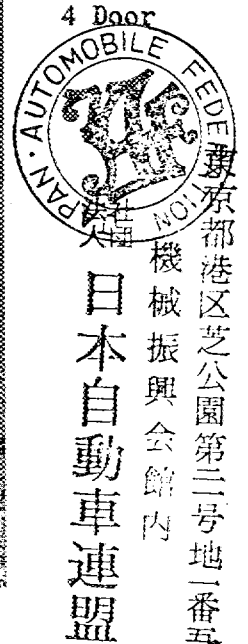 4 Door
PAN · AUTOMOBILE FEDE ION
東京都港区芝公園第三号地一番五
機械振興会館内
社団法人 日本自動車連盟